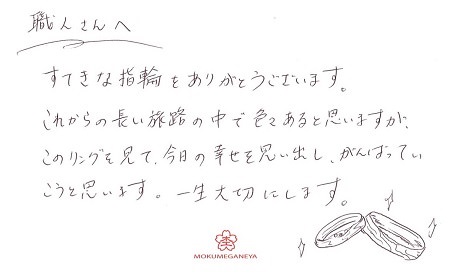 職人さんへ
すてきな指輪をありがとうございます。
これからの長い旅路の中で色々あると思いますが、
このリングを見て、今日の幸せを思い出し、がんばってい
こうと思います。一生大切にします。
MOKUMEGANEYA